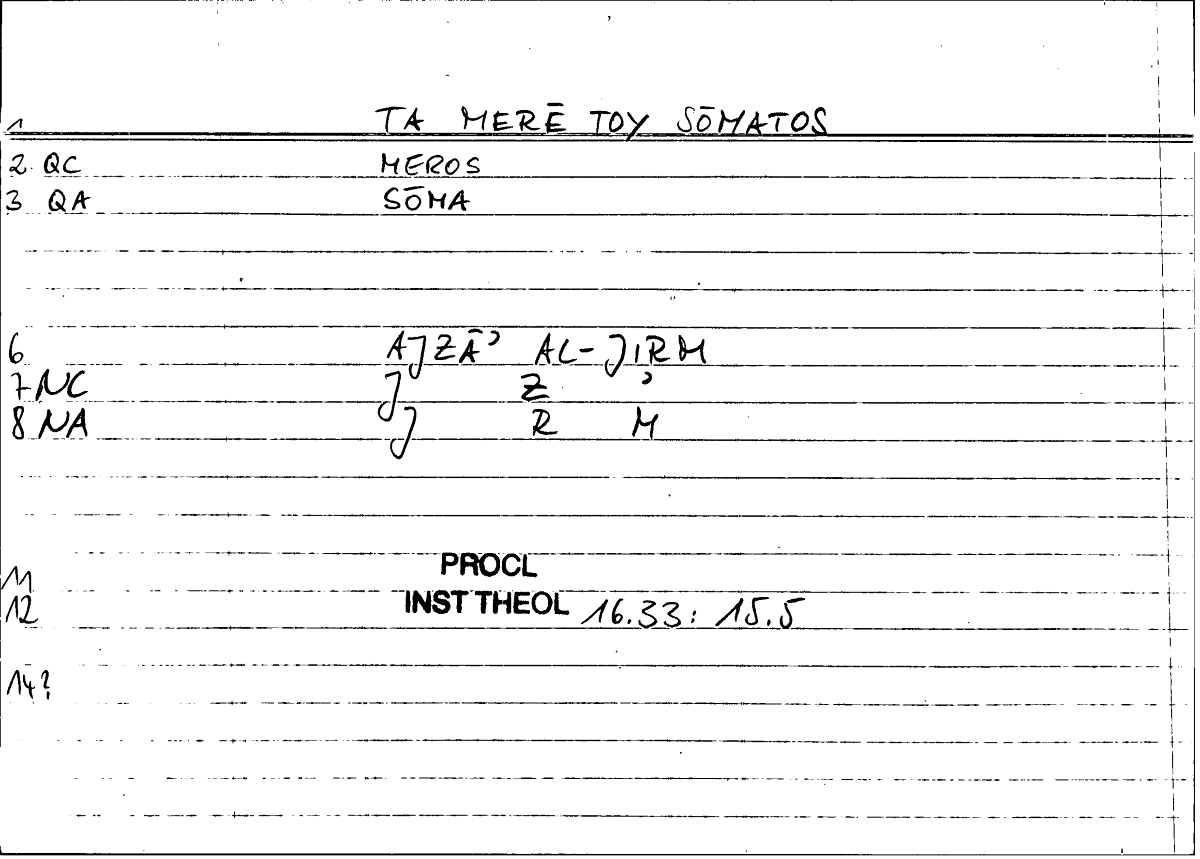 1 TA MERĒ TOY SŌMATOS
2 QC MEROS
3 QA SŌMA
6 AJZĀʾ AL-JIRM
7 NC J Z ʾ
8 NA J R M
11 PROCL
12 INST THEOL 16.33: 15.5
14?